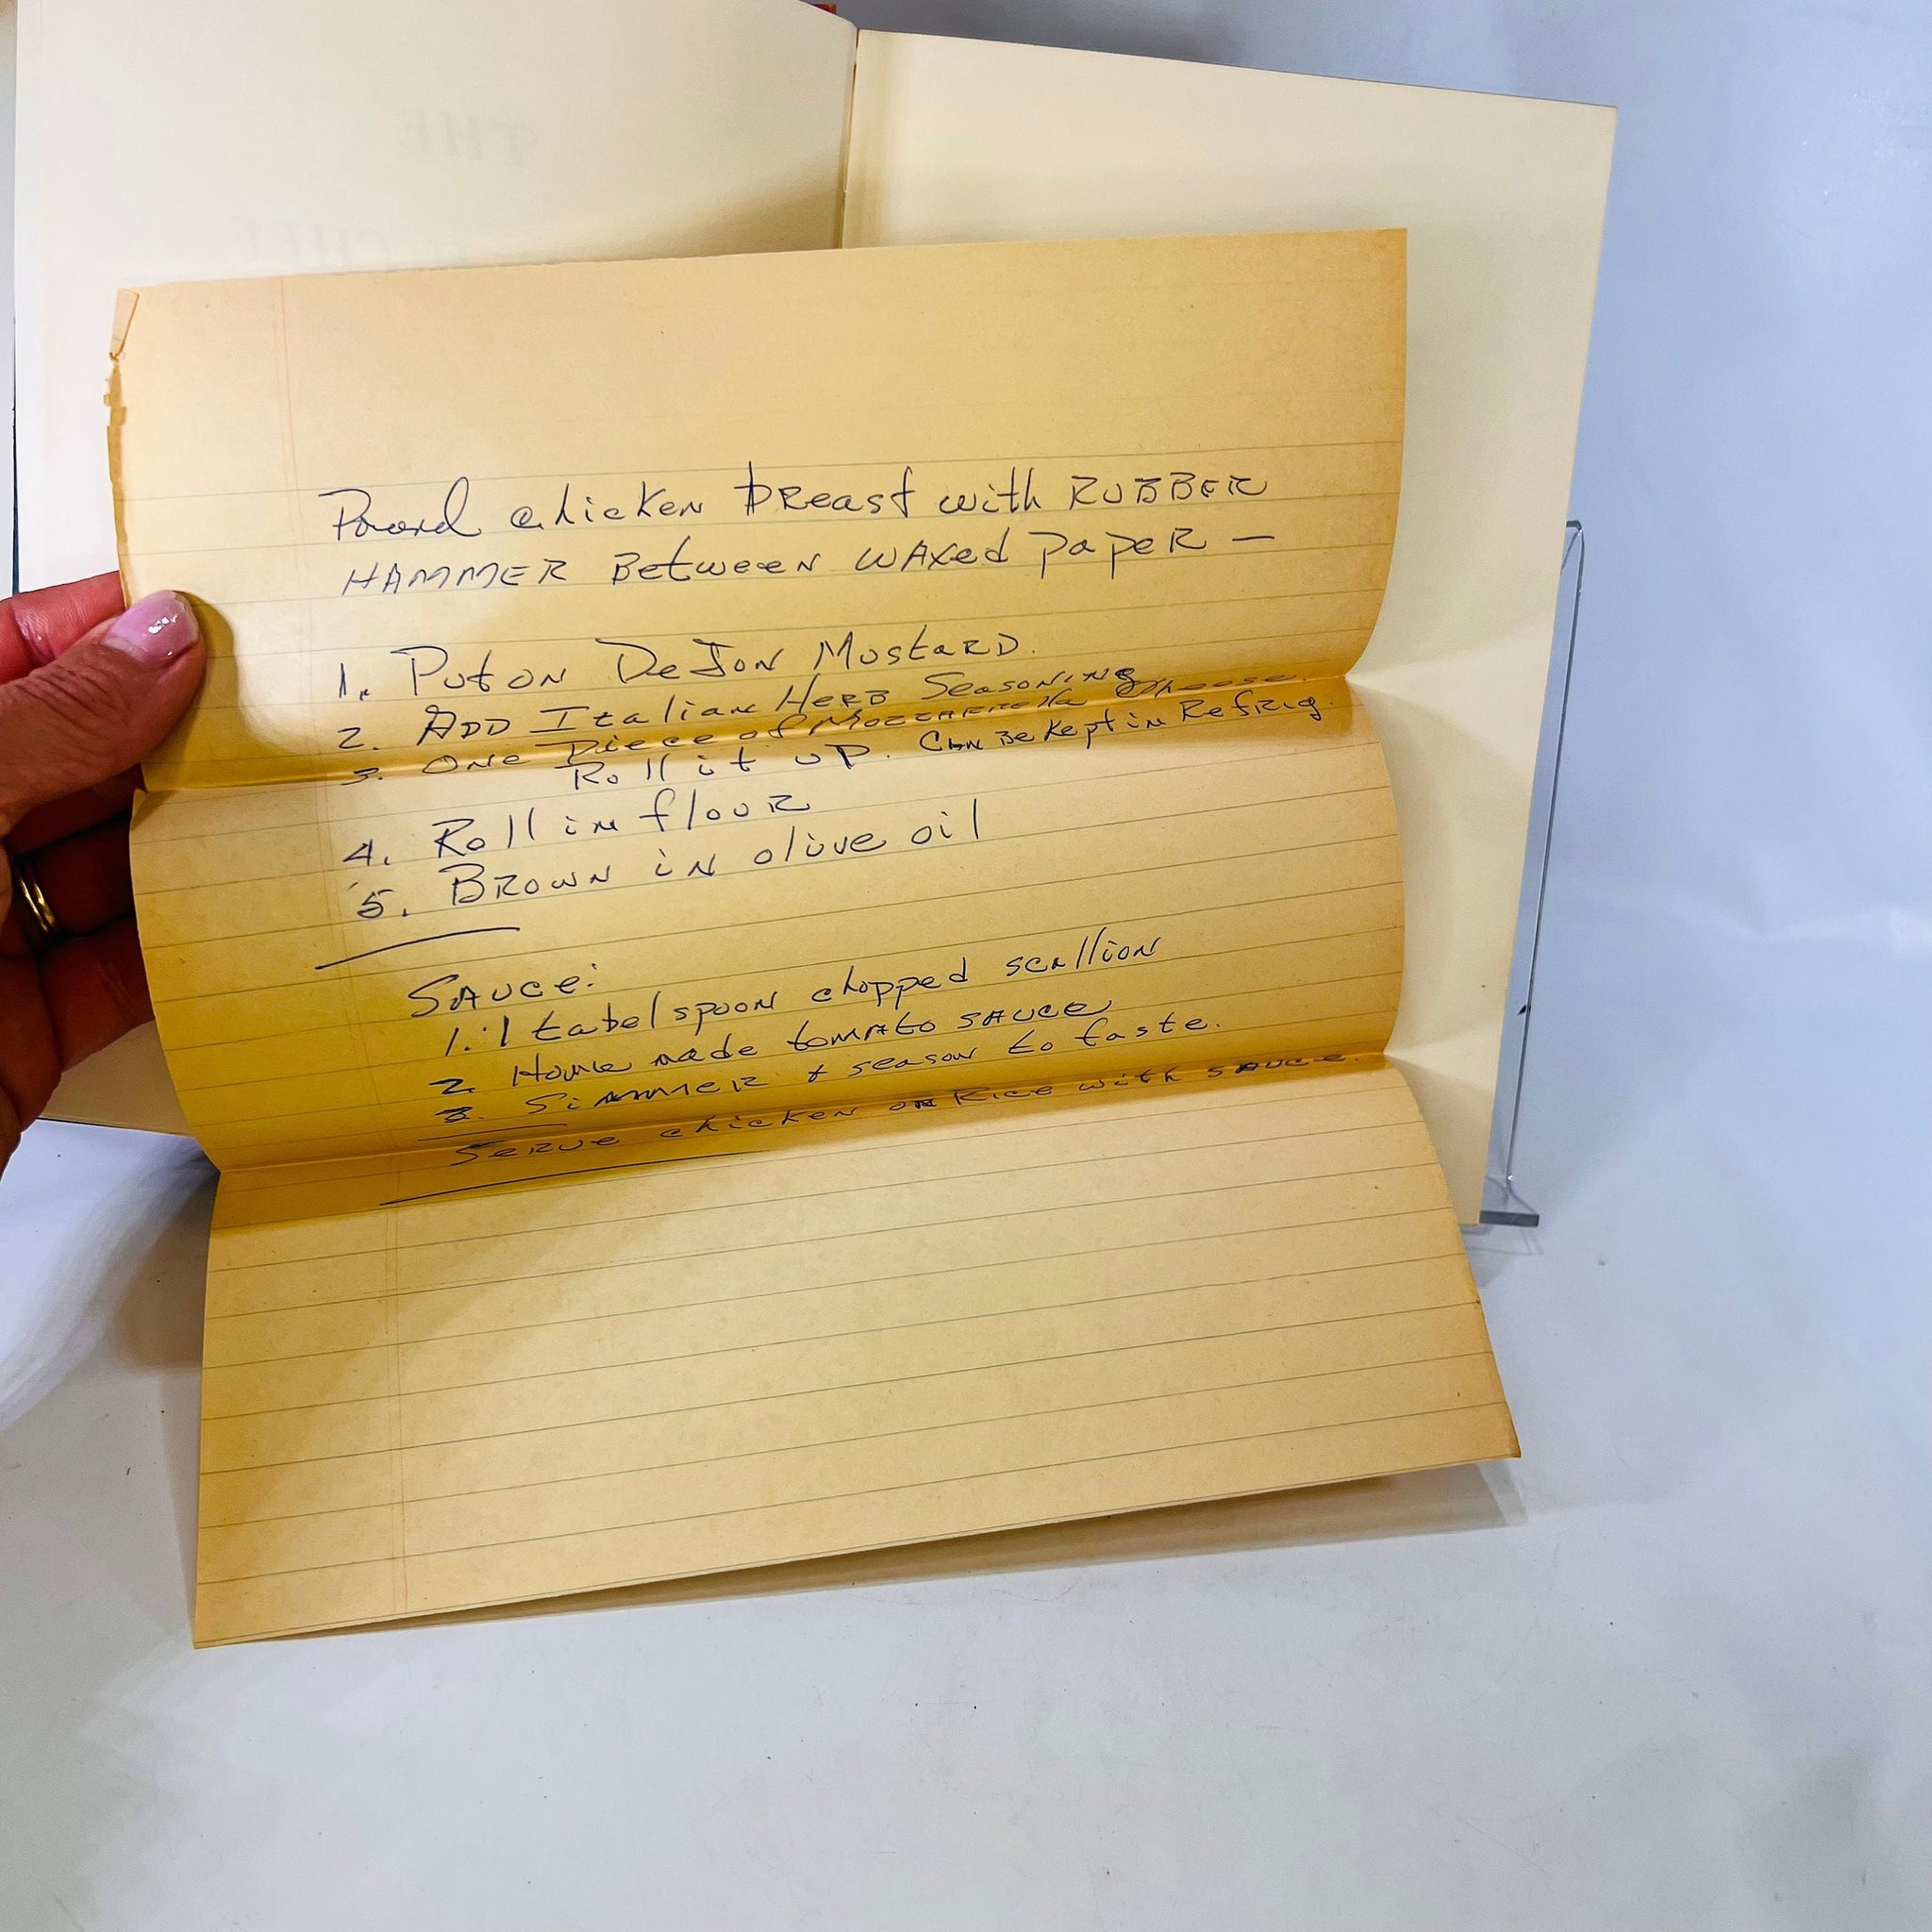 THE
CHEF
Pound chicken breast with RUBBER
HAMMER Between WAXed paper —
1. Put on DeJon Mustard.
2. ADD Italian Herb Seasoning
3. One Piece of Mozzarella Cheese.
Roll it up. Can Be kept in Refrig.
4. Roll in flour
5. Brown in olive oil
Sauce:
1. 1 tabelspoon chopped scallion
2. Home made tomato sauce
3. Simmer & season to taste.
Serve chicken on Rice with sauce.